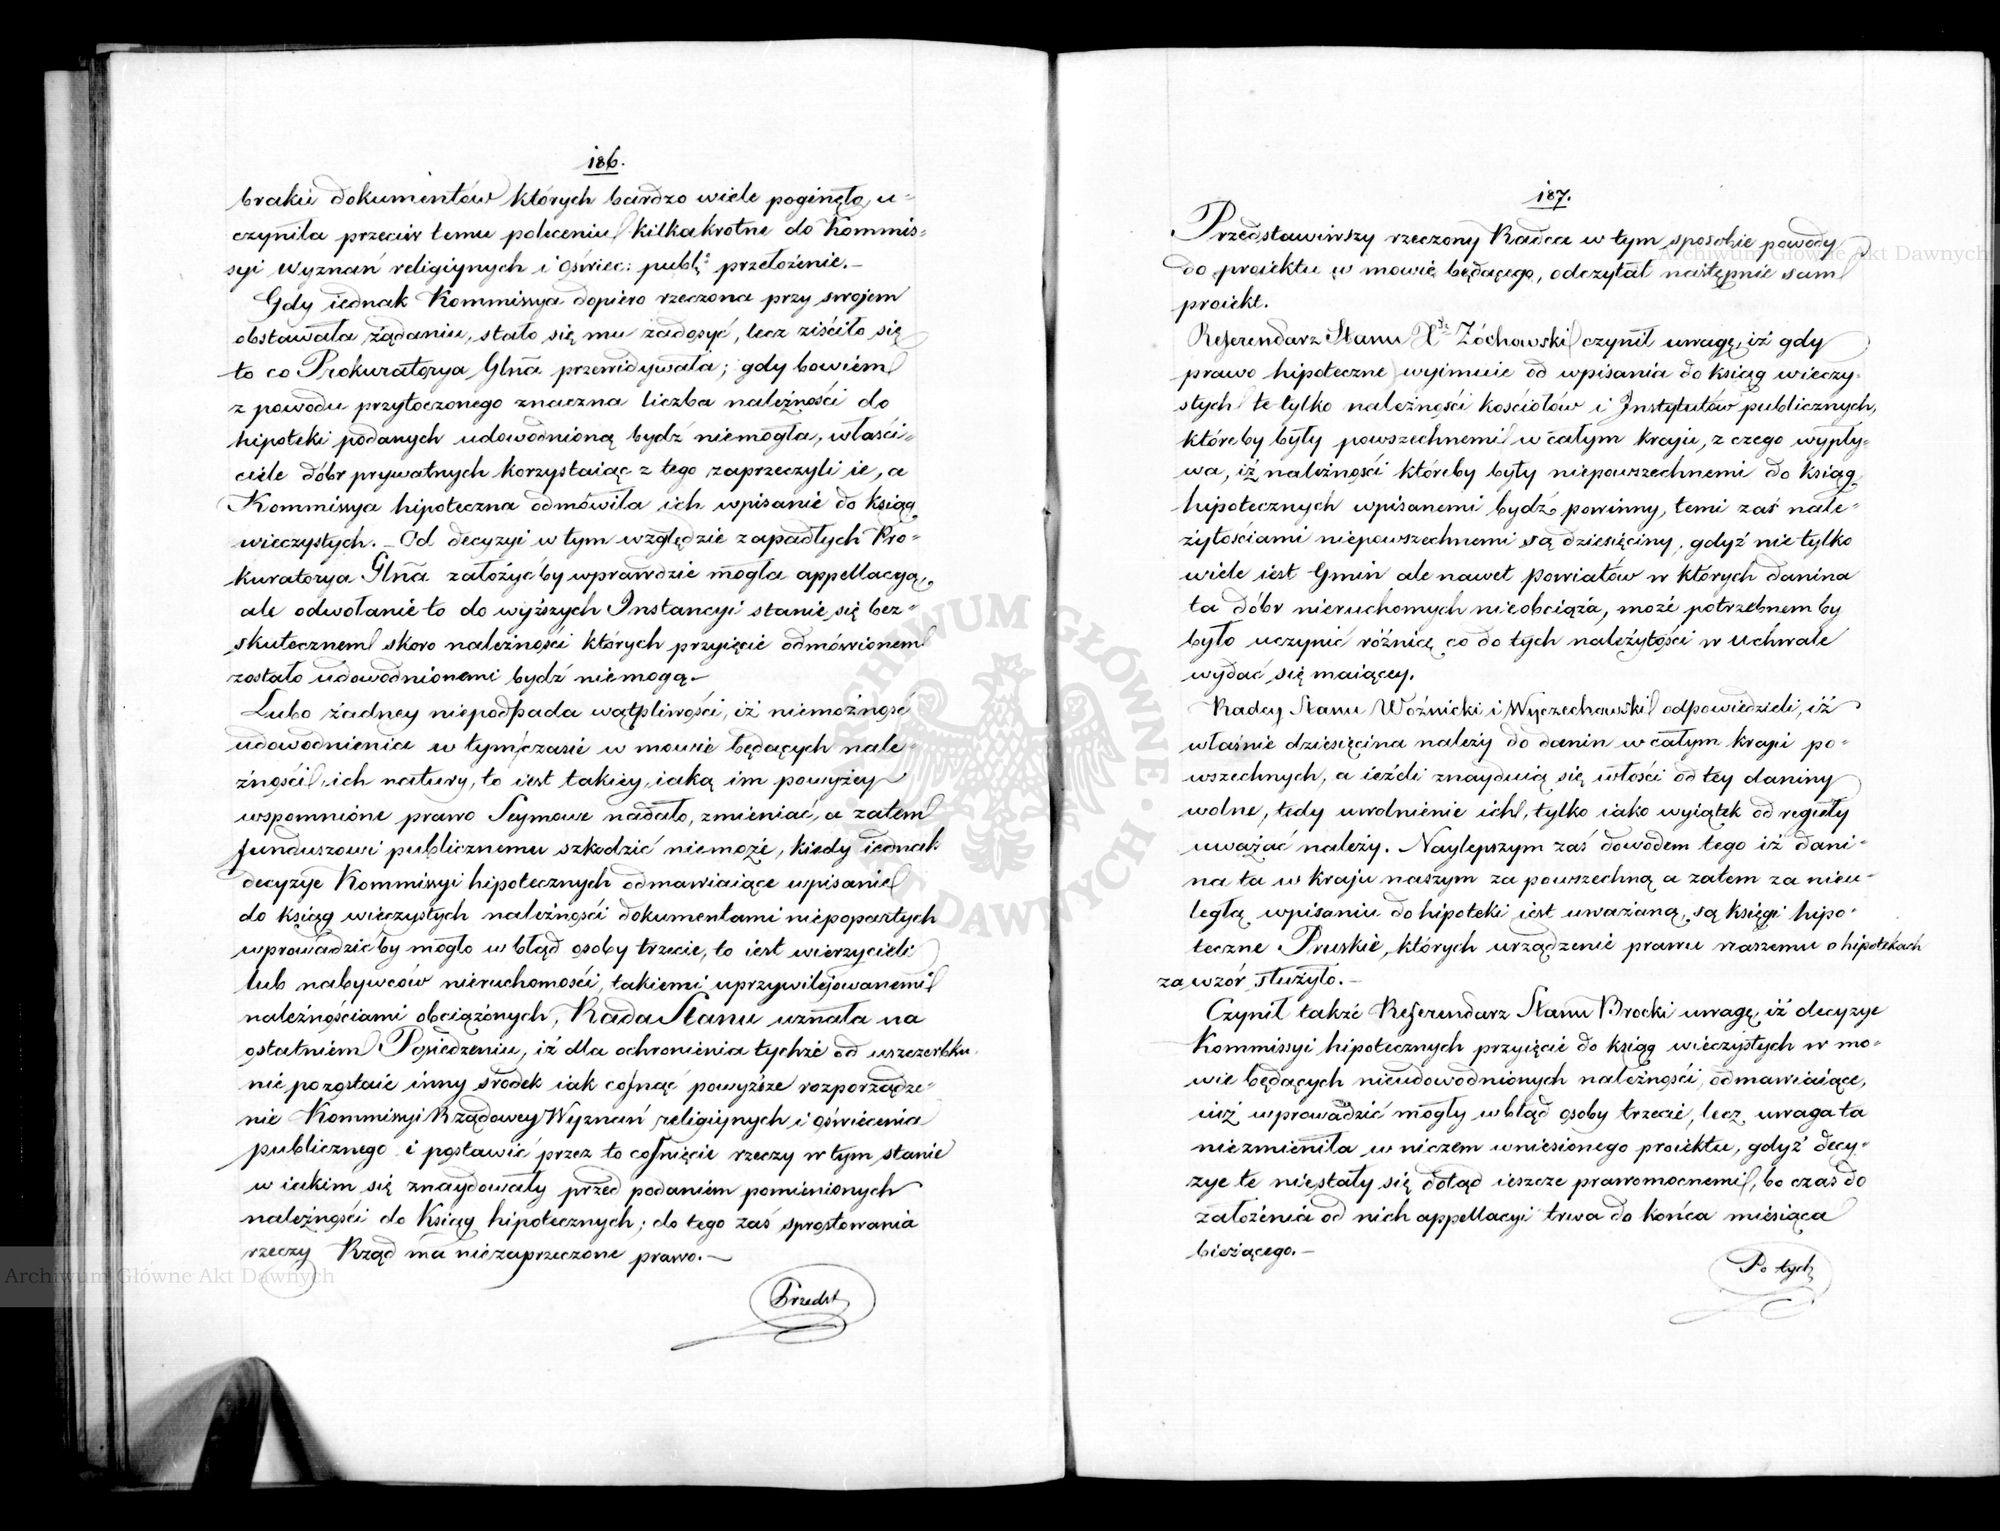 186.
braku dokumentów których bardzo wiele poginęło, u-
czyniła przeciw temu poleceniu kilkakrotne do Kommis-
syi Wyznań religiynych i Oświec: publ: przełożenie.-
Gdy iednak Kommissya dopiero rzeczona przy swojem
obstawała żądaniu, stało się mu zadosyć, lecz ziściło się
to co Prokuratorya Glna przewidywała; gdy bowiem
z powodu przytoczonego znaczna liczba należności do
hipoteki podanych udowodnioną bydź niemogła, właści-
ciele dóbr prywatnych korzystaiąc z tego zaprzeczyli ie, a
Kommissya hipoteczna odmówiła ich wpisanie do ksiąg
wieczystych. - Od decyzyi w tym względzie zapadłych Pro-
kuratorya Glna założyćby wprawdzie mogła appellacyą,
ale odwołanie to do wyższych Instancyi stanie się bez-
skutecznem skoro należności których przyięcie odmówionem
zostało udowodnionemi bydź niemogą.-
Lubo żadney niepodpada wątpliwości, iż niemożność
udowodnienia w tymczasie w mowie będących nale-
żności, ich natury, to iest takiey, iaką im powyżey
wspomnione prawo Seymowe nadało, zmieniać, a zatem
funduszowi publicznemu szkodzić niemoże, kiedy iednak
decyzye Kommissyi hipotecznych odmawiaiące wpisanie
do ksiąg wieczystych należności dokumentami niepopartych
wprowadzićby mogło w błąd osoby trzecie, to iest wierzycieli
lub nabywców nieruchomości, takiemi uprzywilejowanemi
należnościami obciążonych, Rada Stanu uznała na
ostatniem Posiedzeniu, iż dla ochronienia tychże od uszczerbku
nie pozostaie inny srodek iak cofnąć powyższe rozporządze-
nie Kommissyi Rządowey Wyznań religiynych i Oświecenia
publicznego i postawić przez to cofnięcie rzeczy w tym stanie
w iakim się znaydowały przed podaniem pomienionych
należności do Ksiąg hipotecznych; do tego zaś sprostowania
rzeczy Rząd ma niezaprzeczone prawo.-
Przedst
187.
Przedstawiwszy rzeczony Radca w tym sposobie powody
do proiektu w mowie będącego, odczytał następnie sam
proiekt.
Referendarz Stanu Xdz Zóchowski czynił uwagę, iż gdy
prawo hipoteczne wyimuie od wpisania do ksiąg wieczy-
stych te tylko należności kościołów i Instytutów publicznych,
któreby były powszechnemi w całym kraju, z czego wypły-
wa, iż należności któreby były niepowszechnemi do ksiąg
hipotecznych wpisanemi bydź powinny, temi zaś nale-
żytościami niepowszechnemi są dziesięciny, gdyż nie tylko
wiele iest Gmin ale nawet powiatów w których danina
ta dóbr nieruchomych nieobciąża, może potrzebnem by
było uczynić różnicę co do tych należytości w Uchwale
wydać się maiącey.
Radcy Stanu Woźnicki i Wyczechowski odpowiedzieli, iż
właśnie dziesięcina należy do danin w całym kraju po-
wszechnych, a ieżeli znayduią się włości od tey daniny
wolne, tedy uwolnienie ich, tylko iako wyiątek od reguły
uważać należy. Naylepszym zaś dowodem tego iż dani-
na ta w kraju naszym za powszechną a zatem za nieu-
ległą wpisaniu do hipoteki iest uważaną, są księgi hipo-
teczne Pruskie, których urządzenie prawu naszemu o hipotekach
za wzór służyło.-
Czynił także Referendarz Stanu Brocki uwagę, iż decyzye
Kommissyi hipotecznych przyięcie do ksiąg wieczystych w mo-
wie będących nieudowodnionych należności, odmawiaiące,
iuż wprowadzić mogły w błąd osoby trzecie, lecz uwaga ta
niezmieniła w niczem wniesionego proiektu, gdyż decy-
zye te niestały się dotąd ieszcze prawomocnemi, bo czas do
założenia od nich appellacyi trwa do końca miesiąca
bieżącego.-
Po tych
Archiwum Główne Akt Dawnych
Archiwum Główne Akt Dawnych
ARCHIWUM GŁÓWNE AKT DAWNYCH